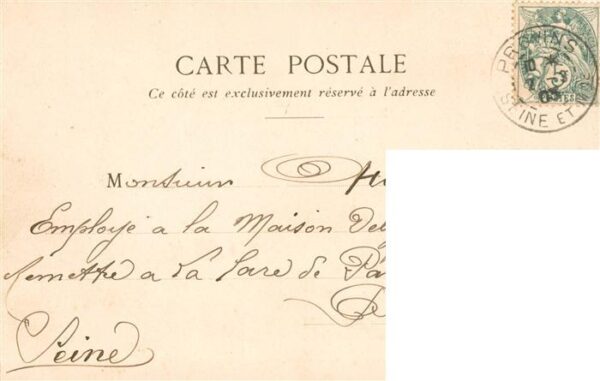 PROVINS
SEINE ET
CARTE POSTALE
Ce côté est exclusivement réservé à l'adresse
Monsieur
Employé a la Maison
Remettre a La Gare de
Seine